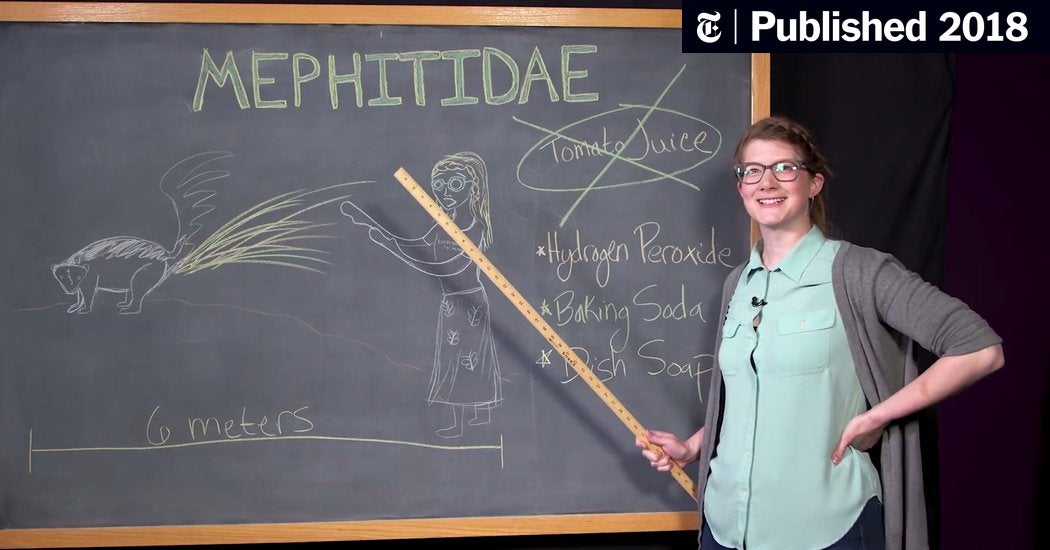 T | Published 2018
MEPHITIDAE
Tomato Juice
*Hydrogen Peroxide
*Baking Soda
*Dish Soap
6 meters